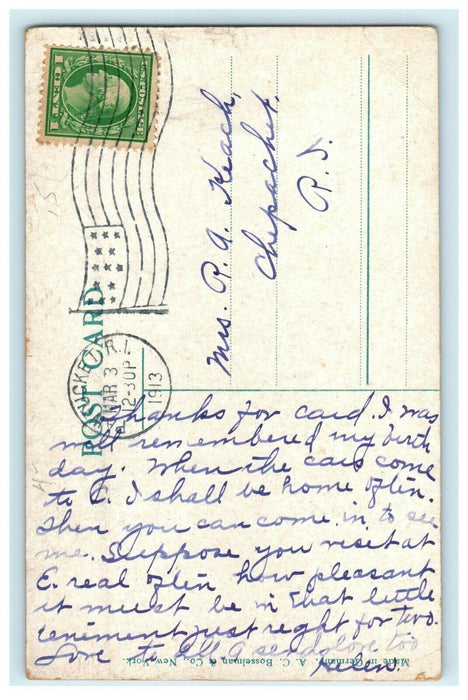 POST CARD
PAWTUCKET, R.I.
MAR 3
12-30P
1913
U.S. POSTAGE
1 CENT 1
Mrs. R. A. Keach,
Chepachet,
R. I.
Thanks for card. I was
well remembered my birth
day. When the cars come
to C. I shall be home often.
Then you can come in to see
me. Suppose you visit at
E. real often how pleasant
it must be in that little
tenement just right for two.
Love to all A sends love too
Helen.
Made in Germany. A. C. Bosselman & Co., New York.